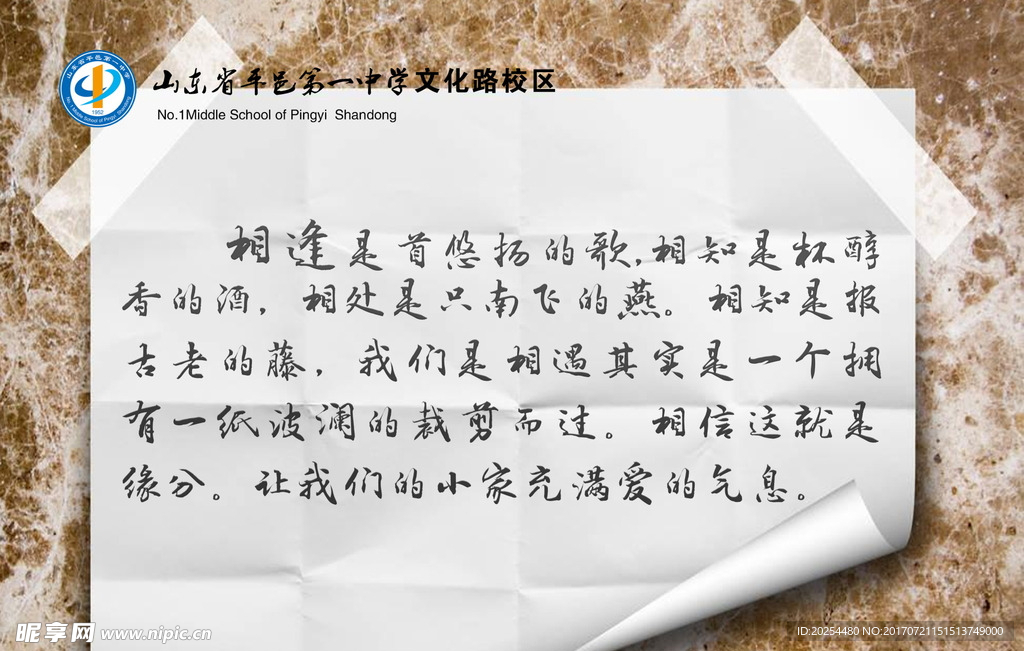 山东省平邑第一中学文化路校区
No.1Middle School of Pingyi Shandong
相逢是首悠扬的歌,相知是杯醇
香的酒，相处是只南飞的燕。相知是报
古老的藤，我们是相遇其实是一个拥
有一纸波澜的裁剪而过。相信这就是
缘分。让我们的小家充满爱的气息。
昵享网 www.nipic.cn
ID:20254480 NO:20170721151513749000